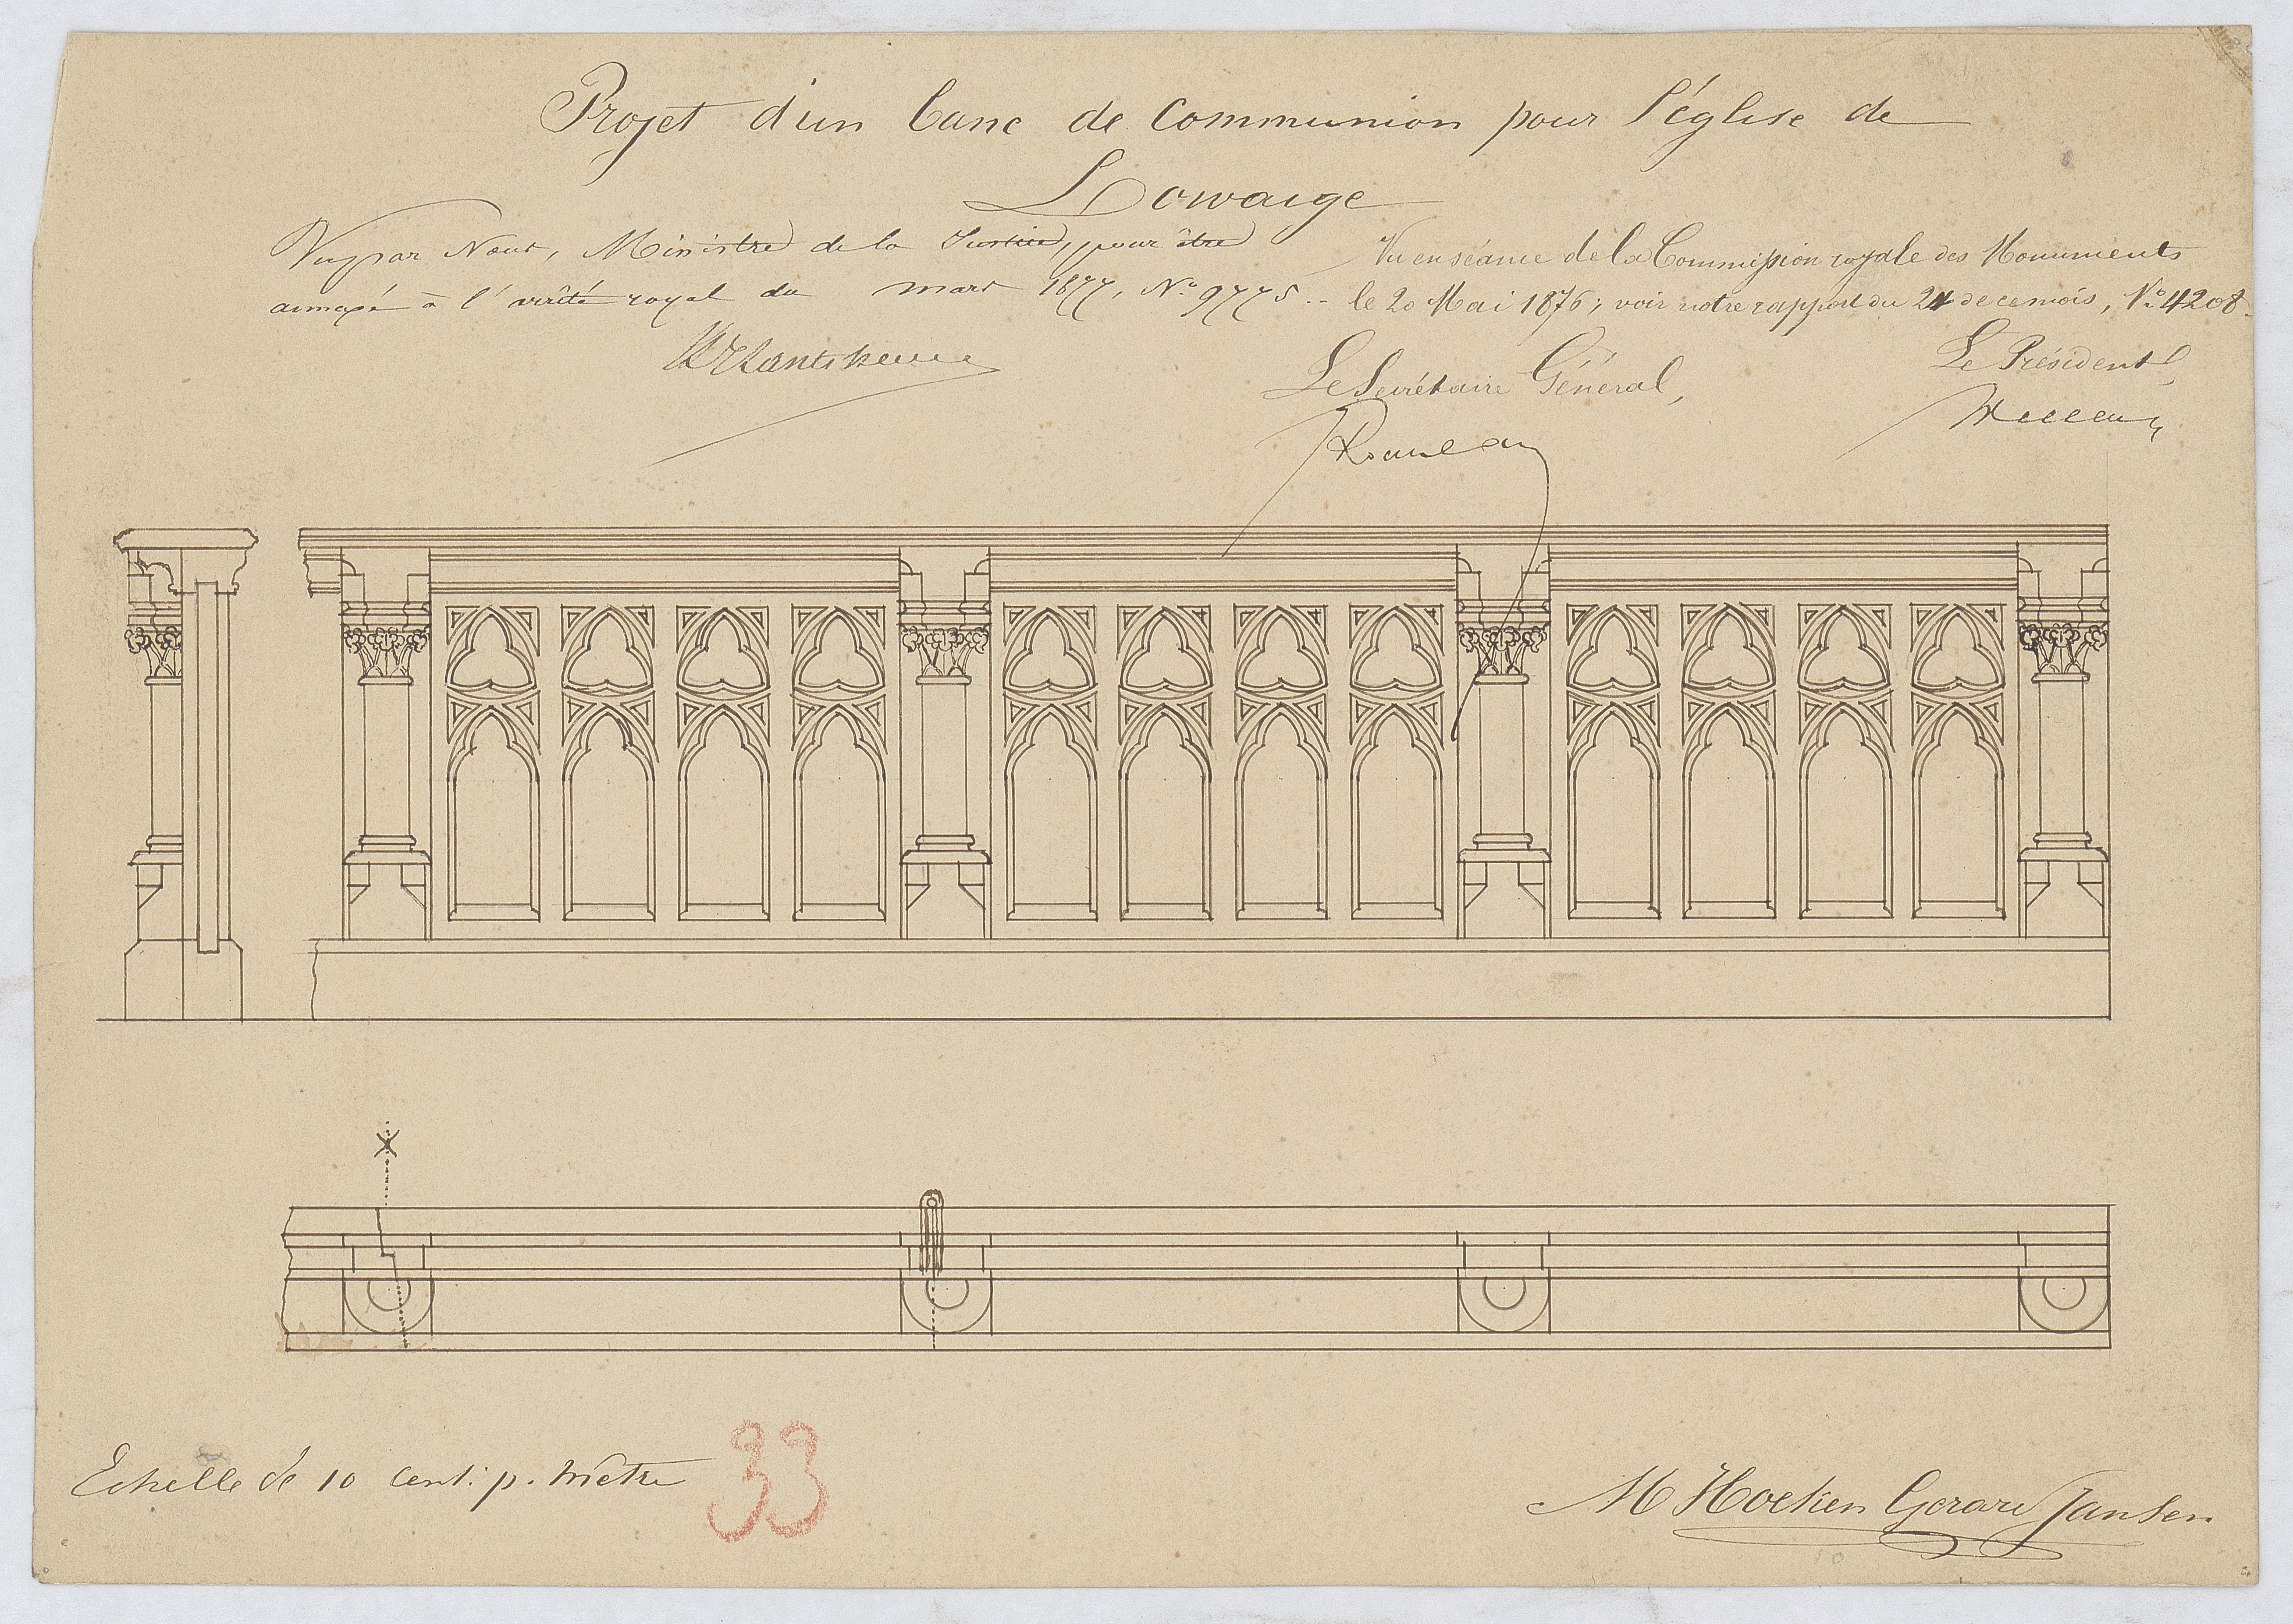 Projet d'un banc de communion pour l'église de
Lowaige
Vu par Nous, Ministre de la Justice, pour être
annexé à l'arrêté royal du mars 1877, N.o 9775.-
Vu en séance de la Commission royale des Monuments
le 20 Mai 1876; voir notre rapport du 24 de ce mois, N.o 4208.
Le Secrétaire Général,
Le Président,
Rousseau
X
Echelle de 10 cent: p. mètre
33
M Hoeken Gerard Jansen